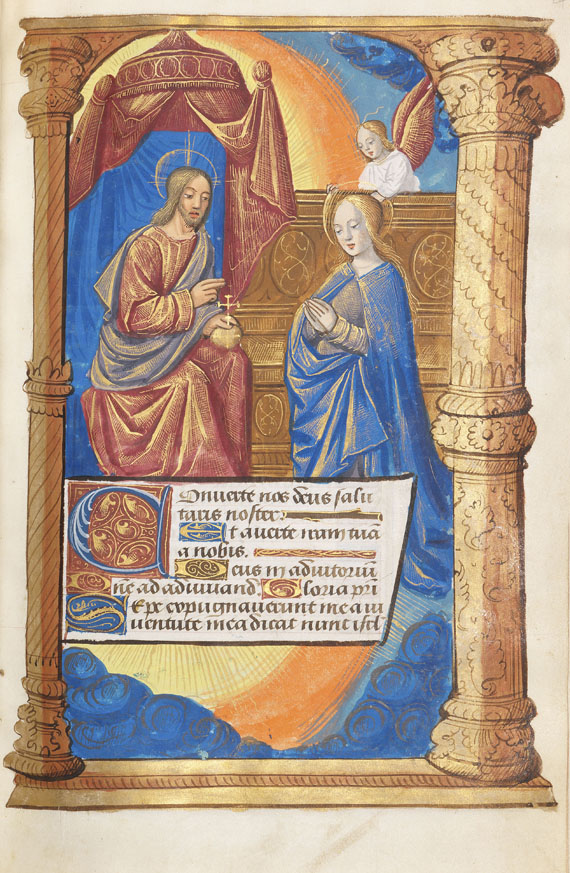 Converte nos deus salu
taris noster.
Et averte iram tuā
a nobis.
Deus in adiutoriū
me ad adiuvand. Gloria pri
Sepe expugnaverunt me a iu
ventute mea dicat nunc isrl